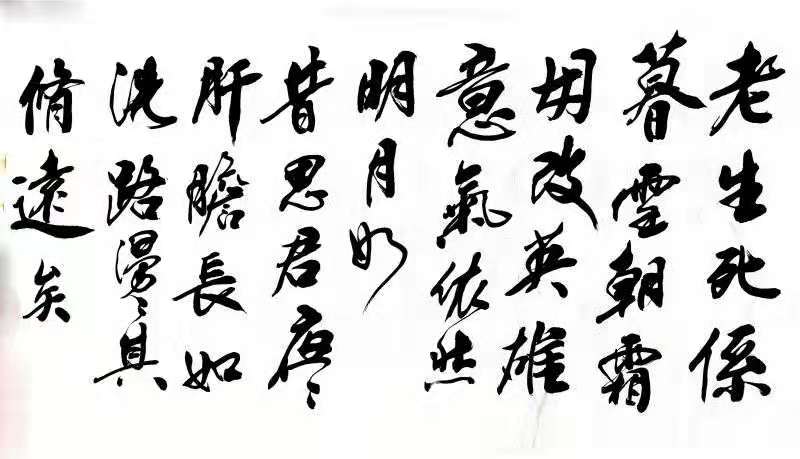 老生死係
暮雪朝霜
毋改英雄
意氣依然
明月如
昔思君
肝膽長如
洗路漫〻其
脩遠矣